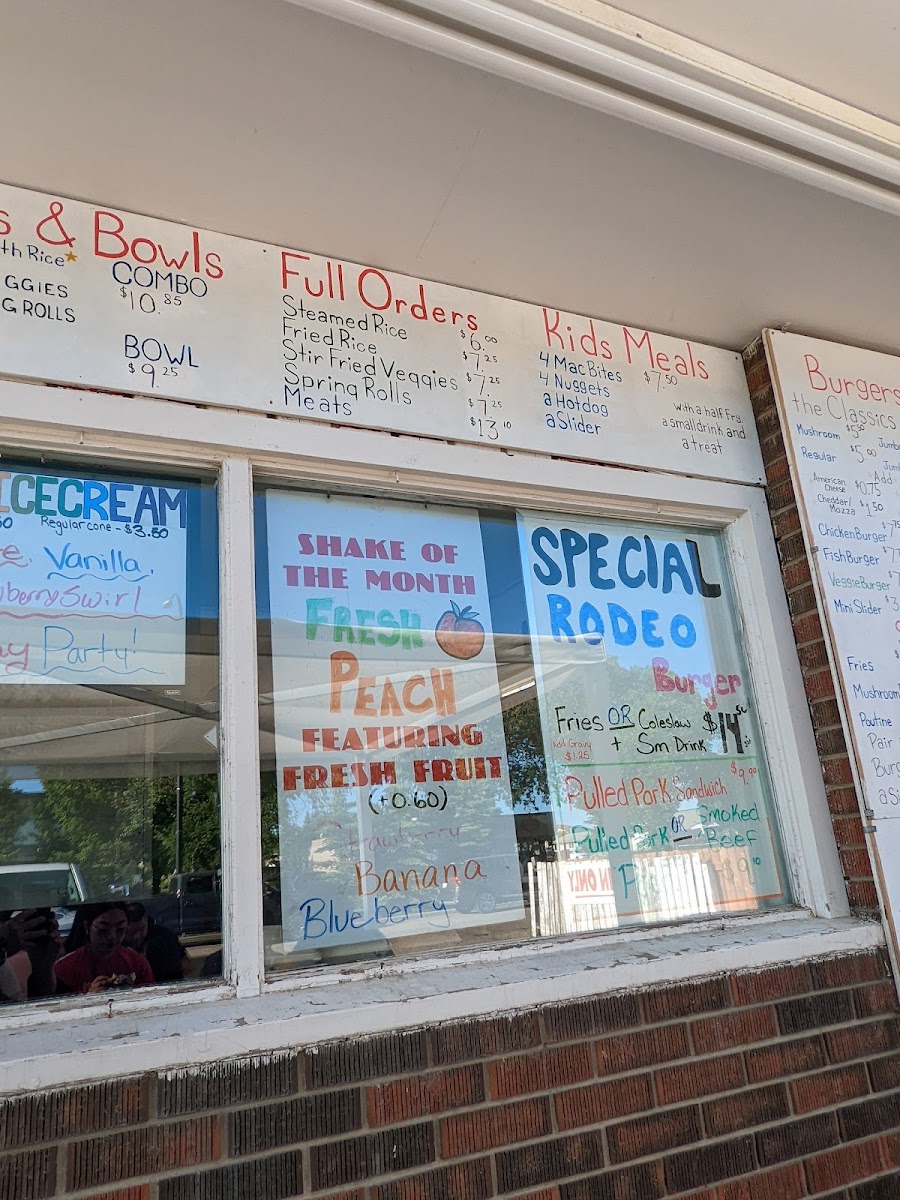 & Bowls
th Rice
GGIES
G ROLLS
COMBO
$10.85
BOWL
$9.25
Full Orders
Steamed Rice $6.00
Fried Rice $7.25
Stir Fried Veggies $7.25
Spring Rolls $7.25
Meats $13.10
Kids Meals
4 Mac Bites $7.50
4 Nuggets
a Hotdog
a Slider
with a half Fry,
a small drink and
a treat
Burgers
the Classics
Mushroom $5.50
Regular $5.00
Add
American Cheese $0.75
Cheddar/Mozza $1.50
Chicken Burger
Fish Burger
Veggie Burger
Mini Slider
Fries
Mushroom
Poutine
Pair
Burg
ICECREAM
Regular cone - $3.50
Vanilla,
berry Swirl
Party!
SHAKE OF
THE MONTH
FRESH
PEACH
FEATURING
FRESH FRUIT
(+0.60)
Strawberry
Banana
Blueberry
SPECIAL
RODEO
Burger
Fries OR Coleslaw $14.50
+ Sm Drink
Add Gravy
$1.25
Pulled Pork Sandwich $9.90
Pulled Pork OR Smoked
Beef
IN ONLY